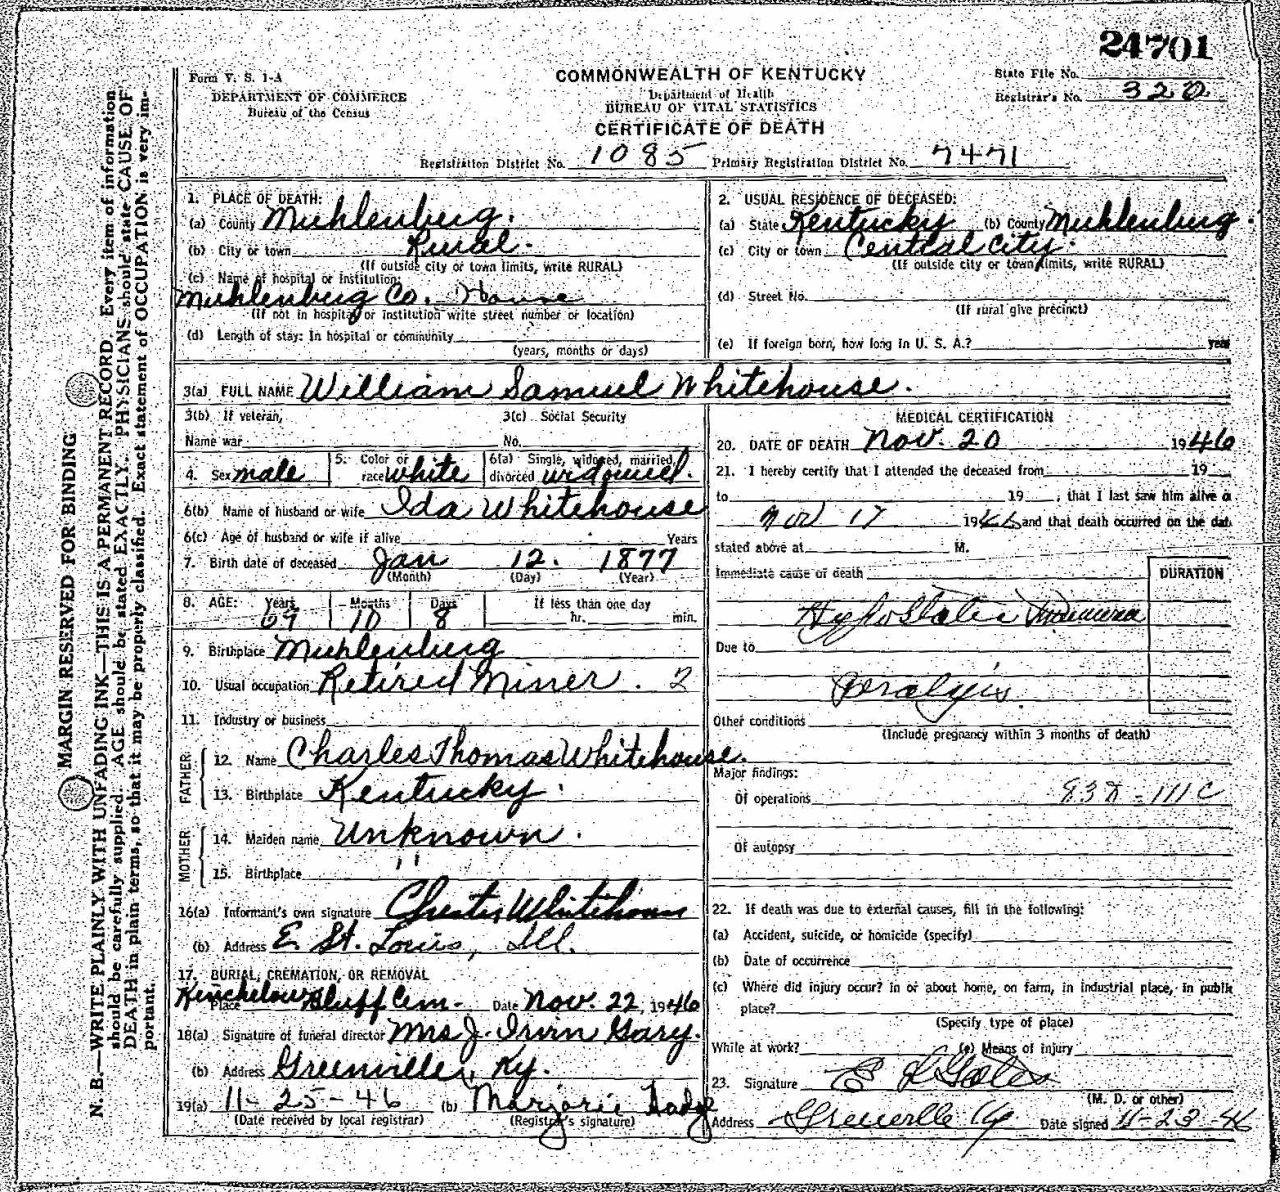 24701
Form V. S. 1-A
DEPARTMENT OF COMMERCE
Bureau of the Census
COMMONWEALTH OF KENTUCKY
Department of Health
BUREAU OF VITAL STATISTICS
CERTIFICATE OF DEATH
State File No.
Registrar's No. 320
Registration District No. 1085 Primary Registration District No. 7471
MARGIN RESERVED FOR BINDING
N. B.—WRITE PLAINLY WITH UNFADING INK—THIS IS A PERMANENT RECORD. Every item of information
should be carefully supplied. AGE should be stated EXACTLY. PHYSICIANS should state CAUSE OF
DEATH in plain terms, so that it may be properly classified. Exact statement of OCCUPATION is very im-
portant.
1. PLACE OF DEATH:
(a) County Muhlenberg.
(b) City or town Rural.
(If outside city or town limits, write RURAL)
(c) Name of hospital or institution:
Muhlenberg Co. House
(If not in hospital or institution write street number or location)
(d) Length of stay: In hospital or community
(years, months or days)
2. USUAL RESIDENCE OF DECEASED:
(a) State Kentucky (b) County Muhlenberg.
(c) City or town Central City.
(If outside city or town limits, write RURAL)
(d) Street No.
(If rural give precinct)
(e) If foreign born, how long in U. S. A.? year
3(a) FULL NAME William Samuel Whitehouse.
3(b) If veteran,
Name war
3(c) Social Security
No.
4. Sex male
5. Color or
race white
6(a) Single, widowed, married,
divorced widowed.
6(b) Name of husband or wife Ida Whitehouse
6(c) Age of husband or wife if alive Years
7. Birth date of deceased Jan 12. 1877
(Month) (Day) (Year)
8. AGE: Years Months Days If less than one day
69 10 8 hr. min.
9. Birthplace Muhlenberg
10. Usual occupation Retired Miner. 2
11. Industry or business
FATHER
12. Name Charles Thomas Whitehouse.
13. Birthplace Kentucky.
MOTHER
14. Maiden name Unknown.
15. Birthplace "
16(a) Informant's own signature Chester Whitehouse
(b) Address E. St. Louis, Ill.
17. BURIAL, CREMATION, OR REMOVAL
Place Bluff Cem. Date Nov. 22, 1946
18(a) Signature of funeral director Mrs J. Irvin Gary.
(b) Address Greenville, Ky.
19(a) 11-25-46 (b) Marjorie
(Date received by local registrar) (Registrar's signature)
MEDICAL CERTIFICATION
20. DATE OF DEATH Nov. 20 1946
21. I hereby certify that I attended the deceased from 19
to 19 , that I last saw him alive o
Nov 17 1946 and that death occurred on the dat
stated above at M.
Immediate cause of death
DURATION
Hypostatic Pneumonia
Due to
Paralysis
Other conditions
(Include pregnancy within 3 months of death)
Major findings:
Of operations
Of autopsy
22. If death was due to external causes, fill in the following:
(a) Accident, suicide, or homicide (specify)
(b) Date of occurrence
(c) Where did injury occur? in or about home, on farm, in industrial place, in public
place?
(Specify type of place)
While at work? (e) Means of injury
23. Signature
(M. D. or other)
Address Greenville Ky Date signed 11-23-46